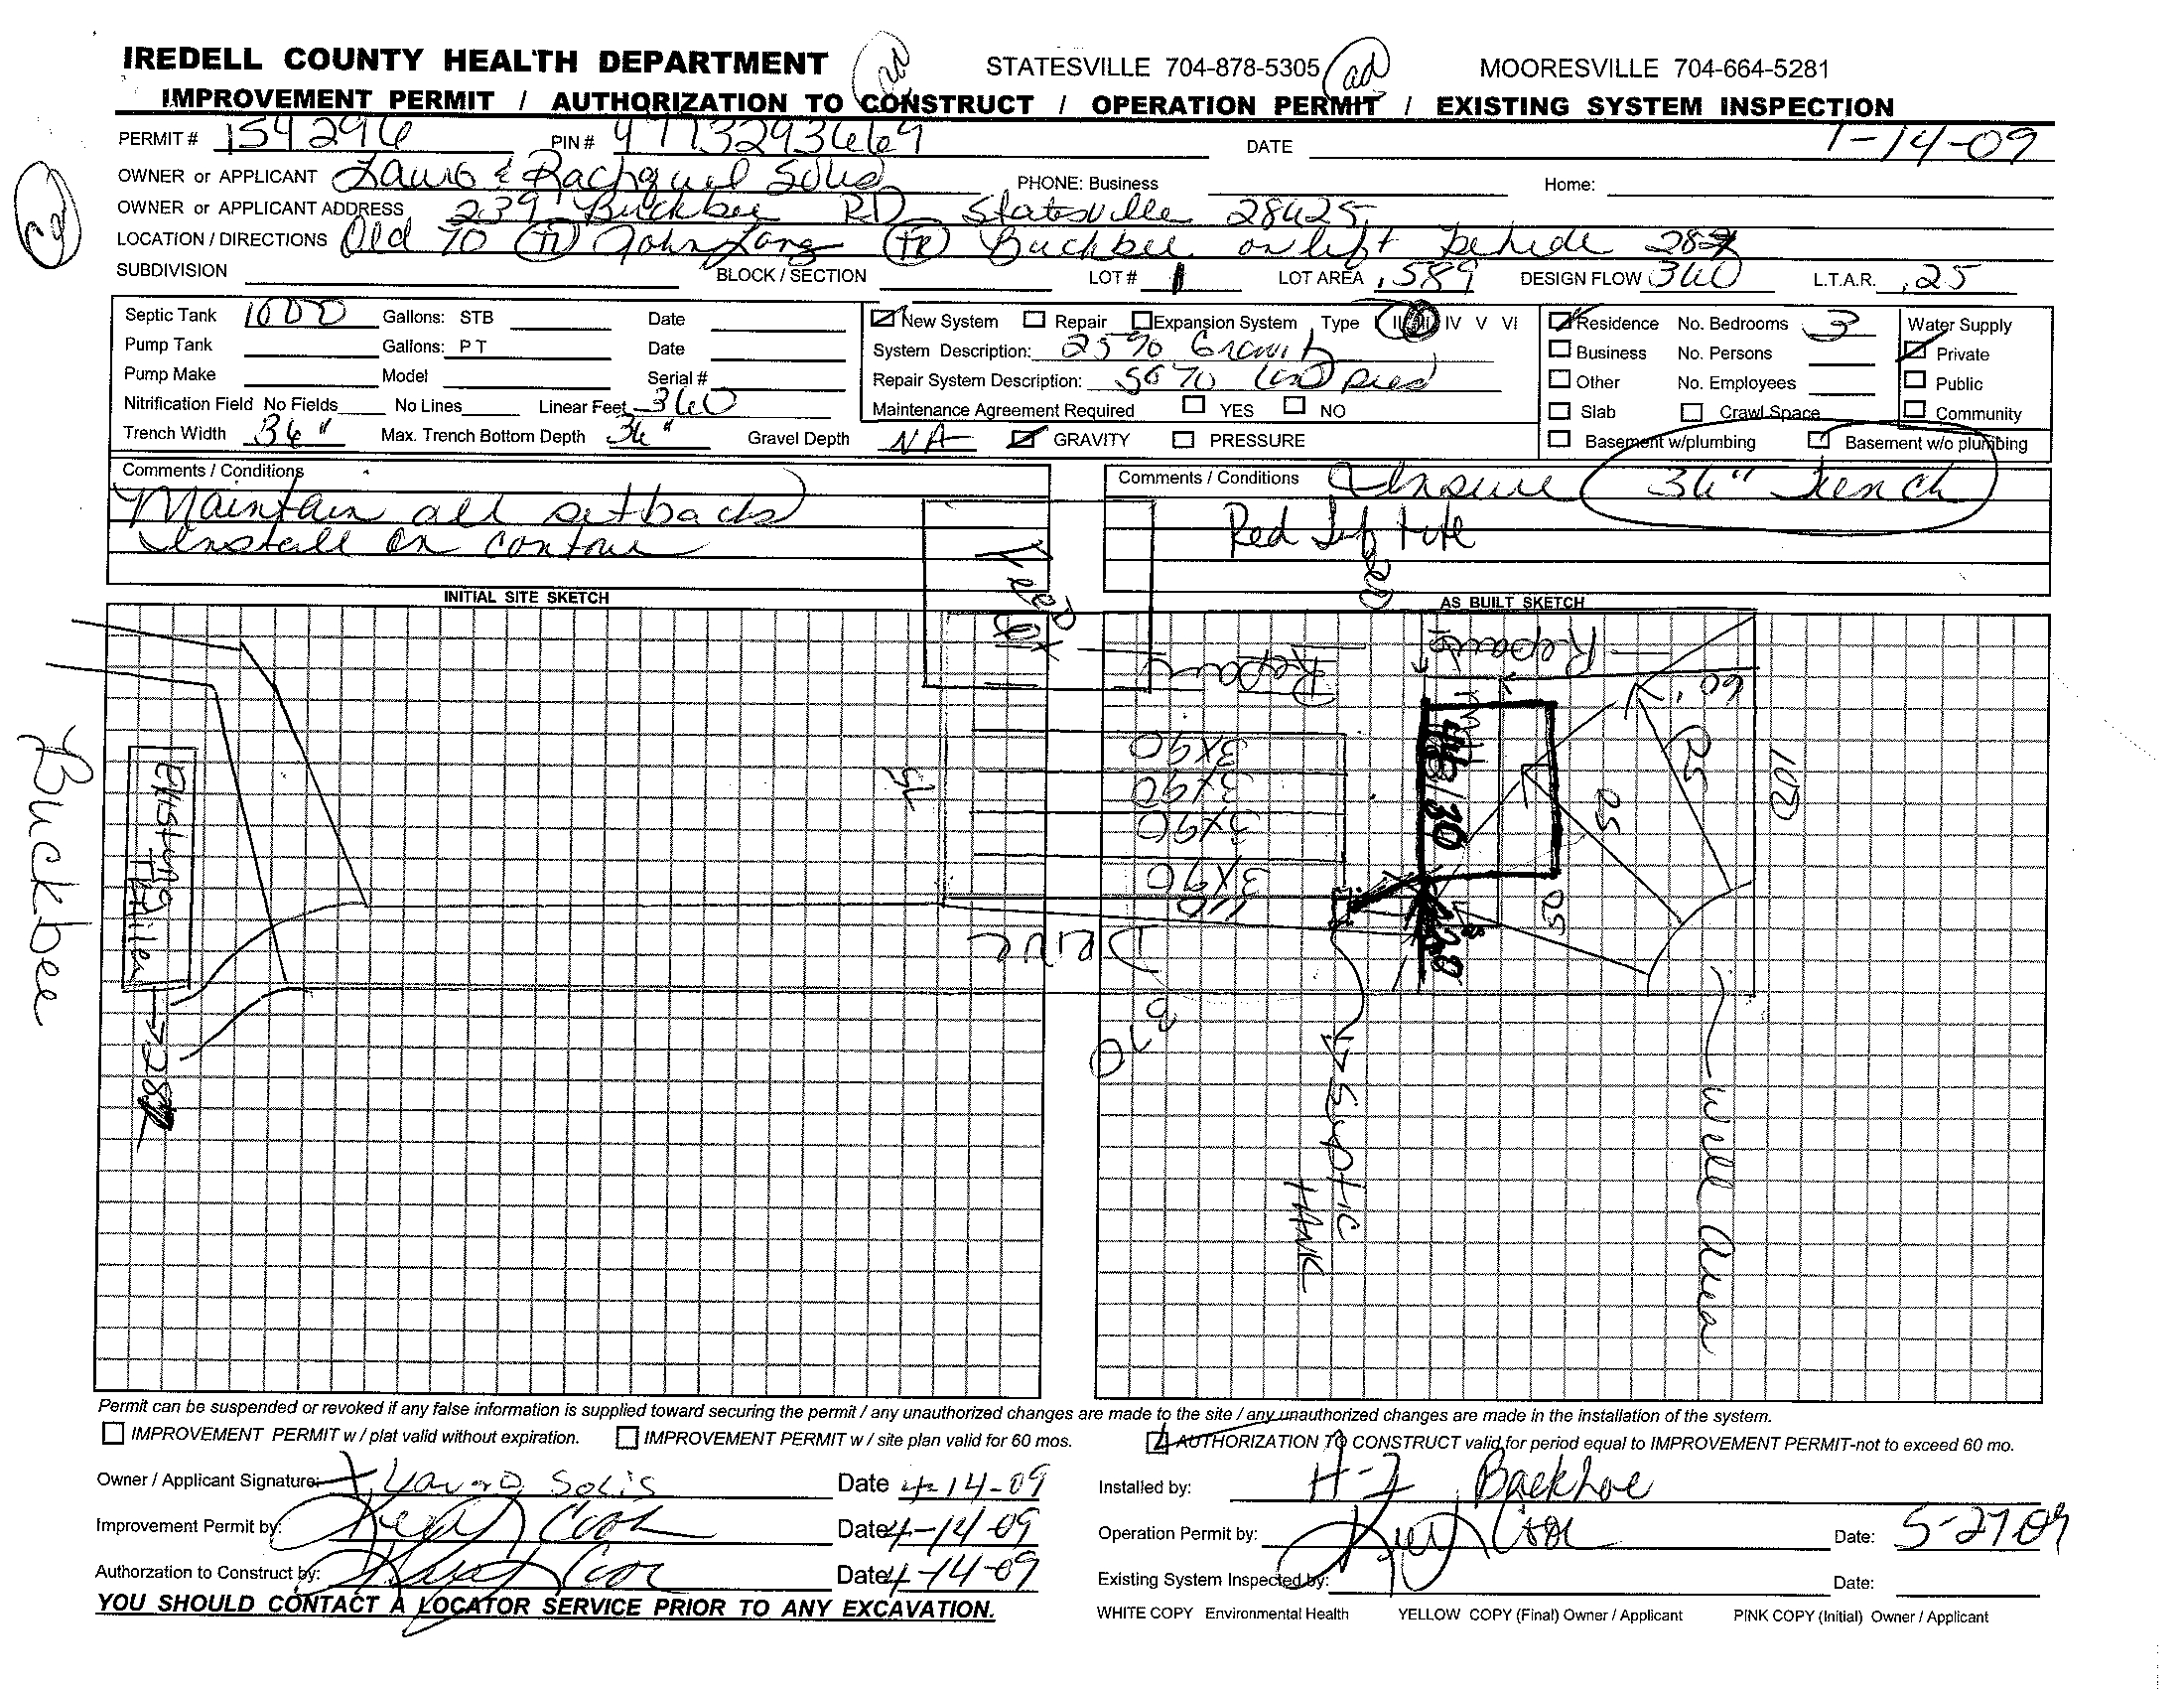 IREDELL COUNTY HEALTH DEPARTMENT ad STATESVILLE 704-878-5305 ad MOORESVILLE 704-664-5281
IMPROVEMENT PERMIT / AUTHORIZATION TO CONSTRUCT / OPERATION PERMIT / EXISTING SYSTEM INSPECTION
PERMIT # 154296 PIN # 4773293669 DATE 1-14-09
OWNER or APPLICANT Lauro & Rachquel Solis PHONE: Business Home:
OWNER or APPLICANT ADDRESS 239 Buckbee RD Statesville 28625
LOCATION / DIRECTIONS Old 70 John Long Buckbee on left behide
SUBDIVISION BLOCK / SECTION LOT # 1 LOT AREA .589 DESIGN FLOW 360 L.T.A.R. .25
Septic Tank 1000 Gallons: STB Date New System Repair Expansion System Type I II III IV V VI Residence No. Bedrooms 3 Water Supply
Pump Tank Gallons: PT Date System Description: 25% Gravity Business No. Persons Private
Pump Make Model Serial # Repair System Description: 50% Other No. Employees Public
Nitrification Field No Fields No Lines Linear Feet 360 Maintenance Agreement Required YES NO Slab Crawl Space Community
Trench Width 36" Max. Trench Bottom Depth 36" Gravel Depth NA GRAVITY PRESSURE Basement w/plumbing Basement w/o plumbing
Comments / Conditions
Maintain all setbacks
Install on contour
Comments / Conditions Ensure 36" Trench
Red
INITIAL SITE SKETCH
AS BUILT SKETCH
Repair
Repair
60'
3X90
3X90
3X90
3X90
110
75
25
25
25
100
Drive
Existing Trailer
Buckbee
Septic
TANK
Well Area
Permit can be suspended or revoked if any false information is supplied toward securing the permit / any unauthorized changes are made to the site / any unauthorized changes are made in the installation of the system.
IMPROVEMENT PERMIT w / plat valid without expiration. IMPROVEMENT PERMIT w / site plan valid for 60 mos. AUTHORIZATION TO CONSTRUCT valid for period equal to IMPROVEMENT PERMIT-not to exceed 60 mo.
Owner / Applicant Signature: X Lauro Solis Date 4-14-09 Installed by: Backhoe
Improvement Permit by: Cook Date 4-14-09 Operation Permit by: Date: 5-27-09
Authorzation to Construct by: Date 4-14-09 Existing System Inspected by: Date:
YOU SHOULD CONTACT A LOCATOR SERVICE PRIOR TO ANY EXCAVATION.
WHITE COPY Environmental Health YELLOW COPY (Final) Owner / Applicant PINK COPY (Initial) Owner / Applicant